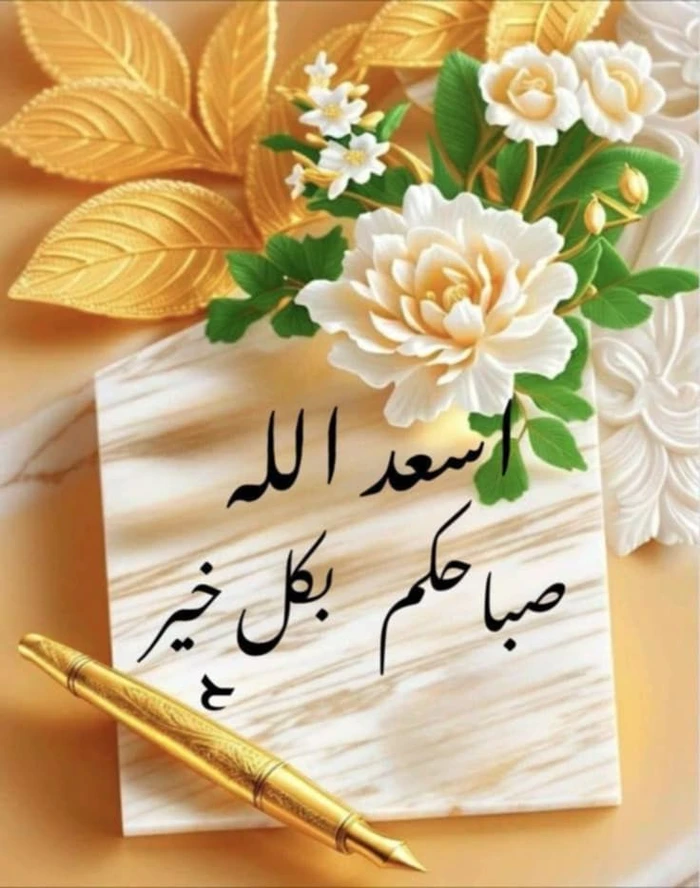 اسعد الله
صباحكم بكل خير
ح